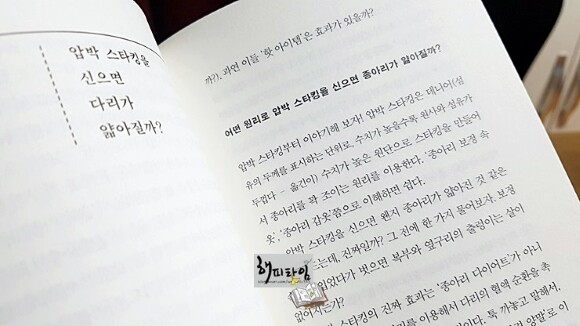 압박 스타킹을
신으면
다리가
얇아질까?
까?). 과연 이들 '핫 아이템'은 효과가 있을까?
어떤 원리로 압박 스타킹을 신으면 종아리가 얇아질까?
압박 스타킹부터 이야기해 보자! 압박 스타킹은 데니어(섬
유의 두께를 표시하는 단위로, 수치가 높을수록 원사와 섬유가
두껍다 – 옮긴이) 수치가 높은 원단으로 스타킹을 만들어
서 종아리를 꽉 조이는 원리를 이용한다. '종아리 보정 속
옷', '종아리 갑옷'쯤으로 이해하면 쉽다.
압박 스타킹을 신으면 왠지 종아리가 얇아진 것 같은
드는데, 진짜일까? 그 전에 한 가지 물어보자. 보정
입었다가 벗으면 복부와 옆구리의 출렁이는 살이
없어지는가?
스타킹의 진짜 효과는 '종아리 다이어트'가 아니
이용해서 다리의 혈액 순환을 촉
툭 까놓고 말해서,
양말'로 이
해피타임